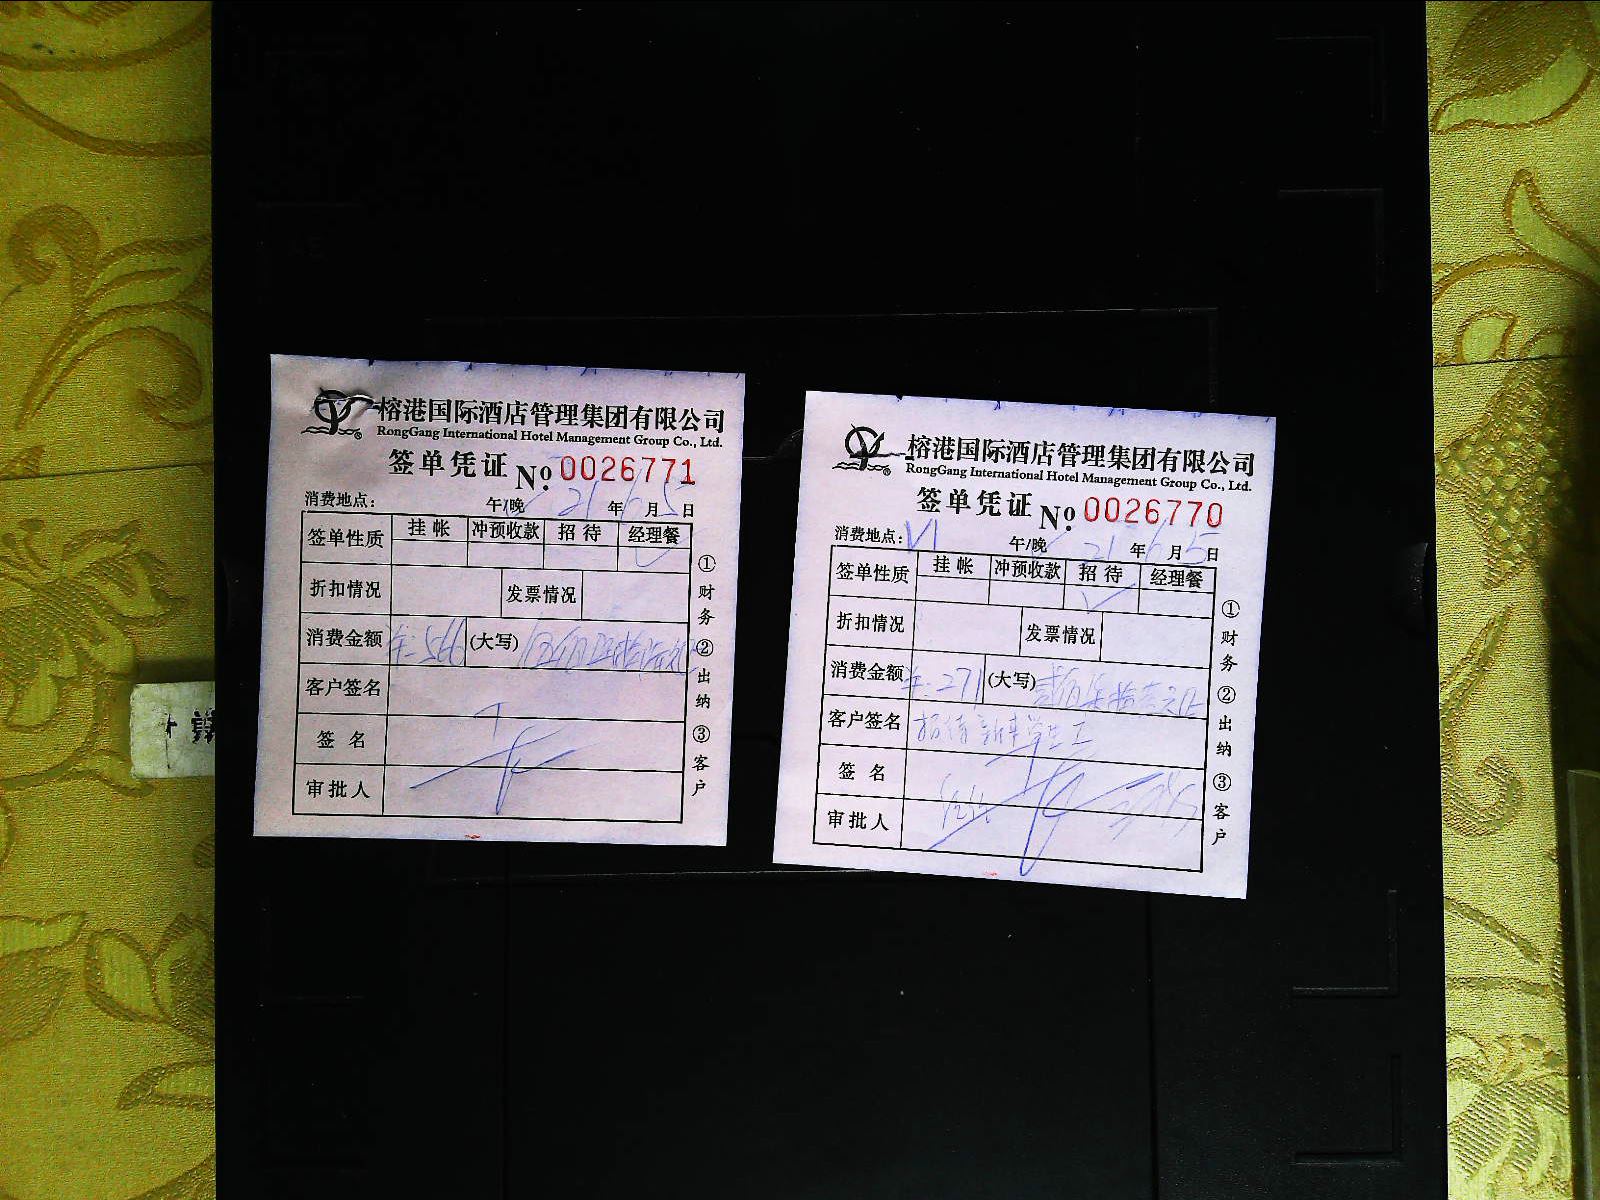 榕港国际酒店管理集团有限公司
RongGang International Hotel Management Group Co., Ltd.
签单凭证 No. 0026771
消费地点： 午/晚 21年6月5日
签单性质 挂帐 冲预收款 招待 经理餐
折扣情况 发票情况
消费金额 ¥:546 (大写)
客户签名
签名
审批人
①财务 ②出纳 ③客户
榕港国际酒店管理集团有限公司
RongGang International Hotel Management Group Co., Ltd.
签单凭证 No. 0026770
消费地点：V1 午/晚 21年6月5日
签单性质 挂帐 冲预收款 招待 经理餐
折扣情况 发票情况
消费金额 ¥:271 (大写) 贰佰柒拾壹元正
客户签名 招待新来学生工
签名
审批人
①财务 ②出纳 ③客户